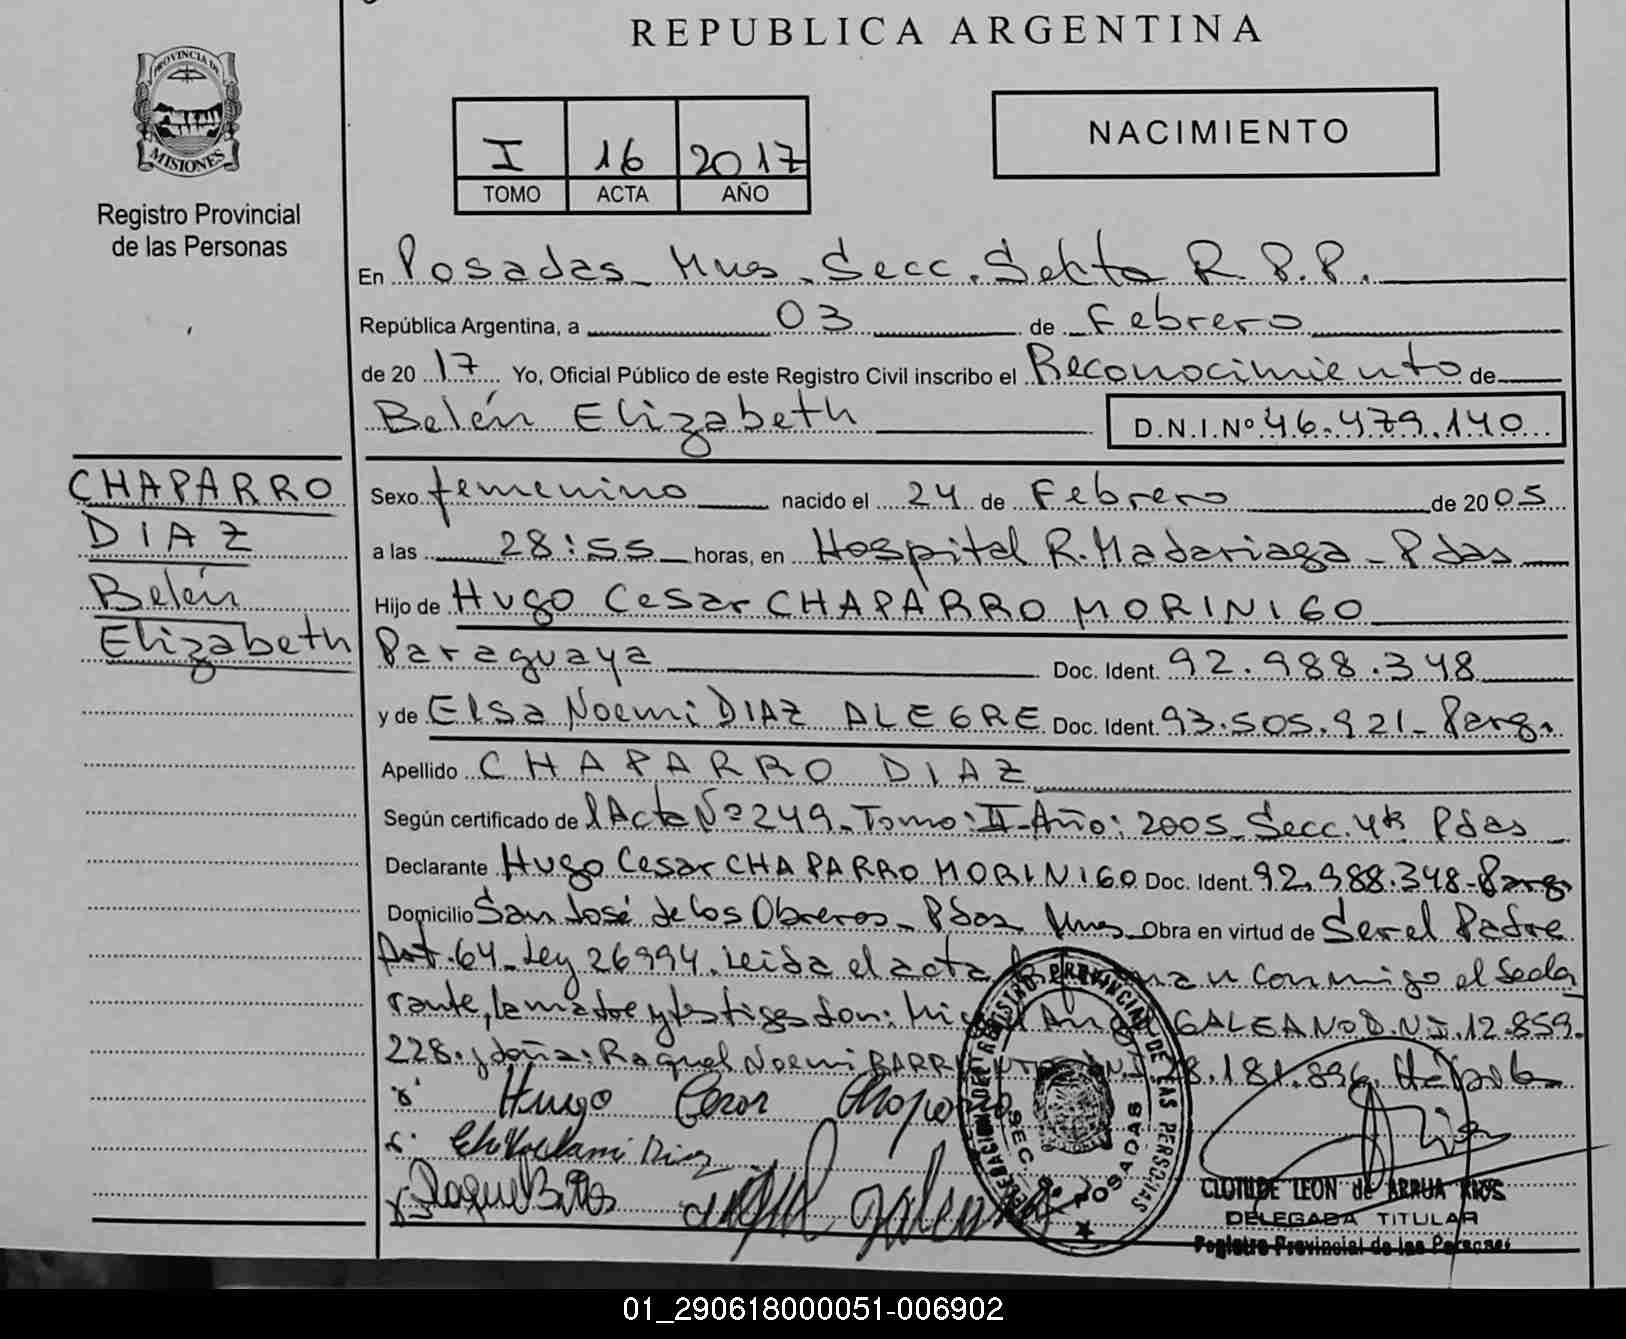 REPUBLICA ARGENTINA
PROVINCIA DE
MISIONES
Registro Provincial
de las Personas
I 16 2017
TOMO ACTA AÑO
NACIMIENTO
En Posadas Mnes. Secc. Sekta R.P.P.
República Argentina, a 03 de Febrero
de 20 17 Yo, Oficial Público de este Registro Civil inscribo el Reconocimiento de
Belén Elizabeth D.N.I.Nº 46.479.140
CHAPARRO
DIAZ
Belén
Elizabeth
Sexo femenino nacido el 24 de Febrero de 20 05
a las 28:55 horas, en Hospital R. Madariaga - Pdas
Hijo de Hugo Cesar CHAPARRO MORINIGO
Paraguaya Doc. Ident. 92.988.348
y de Elsa Noemi DIAZ ALEGRE Doc. Ident. 93.505.921- Parg.
Apellido CHAPARRO DIAZ
Según certificado de l Acta Nº 249 - Tomo: II - Año: 2005 - Secc. 4ta Pdas
Declarante Hugo Cesar CHAPARRO MORINIGO Doc. Ident. 92.988.348 - Parg
Domicilio San José de los Obreros - Pdas Mnes Obra en virtud de Ser el Padre
Art. 64 - Ley 26994. Leida el acta conmigo el decla
rante, la madre y testigos don: GALEANO D.N.I. 12.859.
228. y doña: Raquel Noemi .181.896.
Hugo Cesar
Diaz
REGISTRO PROVINCIAL DE LAS PERSONAS
SEC.
POSADAS
CLOTILDE LEON de ARRUA RIOS
DELEGADA TITULAR
Registro Provincial de las Personas
01_290618000051-006902